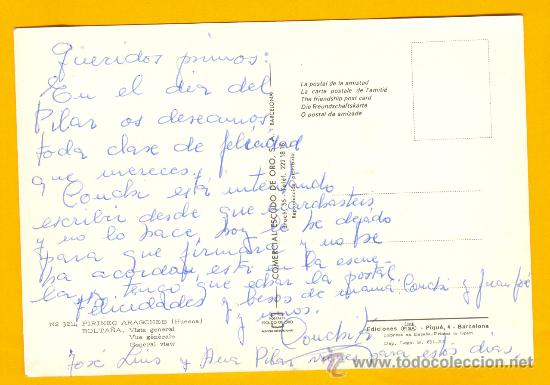 Queridos primos:
En el dia del
Pilar os deseamos
toda clase de felicidad
que mereces.
Conchi esta intentando
escribir desde que
y no lo hace, hoy se ha dejado
para que firmara y no se
ha acordado, esta en la escue-
la, y tengo que echar la postal
Felicidades y besos de mama Conchi y Juan José
y unos.
Conchita
José Luis y Ana Pilar para estos dias
La postal de la amistad
La carte postale de l'amitié
The friendship post card
Die Freundschaftskarte
O postal da amizade
COMERCIAL ESCUDO DE ORO, S.A.
BARCELONA
Nº 321. PIRINEO ARAGONES (Huesca)
BOLTAÑA. Vista general
Vue générale
General view
Ediciones FISA - Piqué, 4 - Barcelona
todocoleccion.net